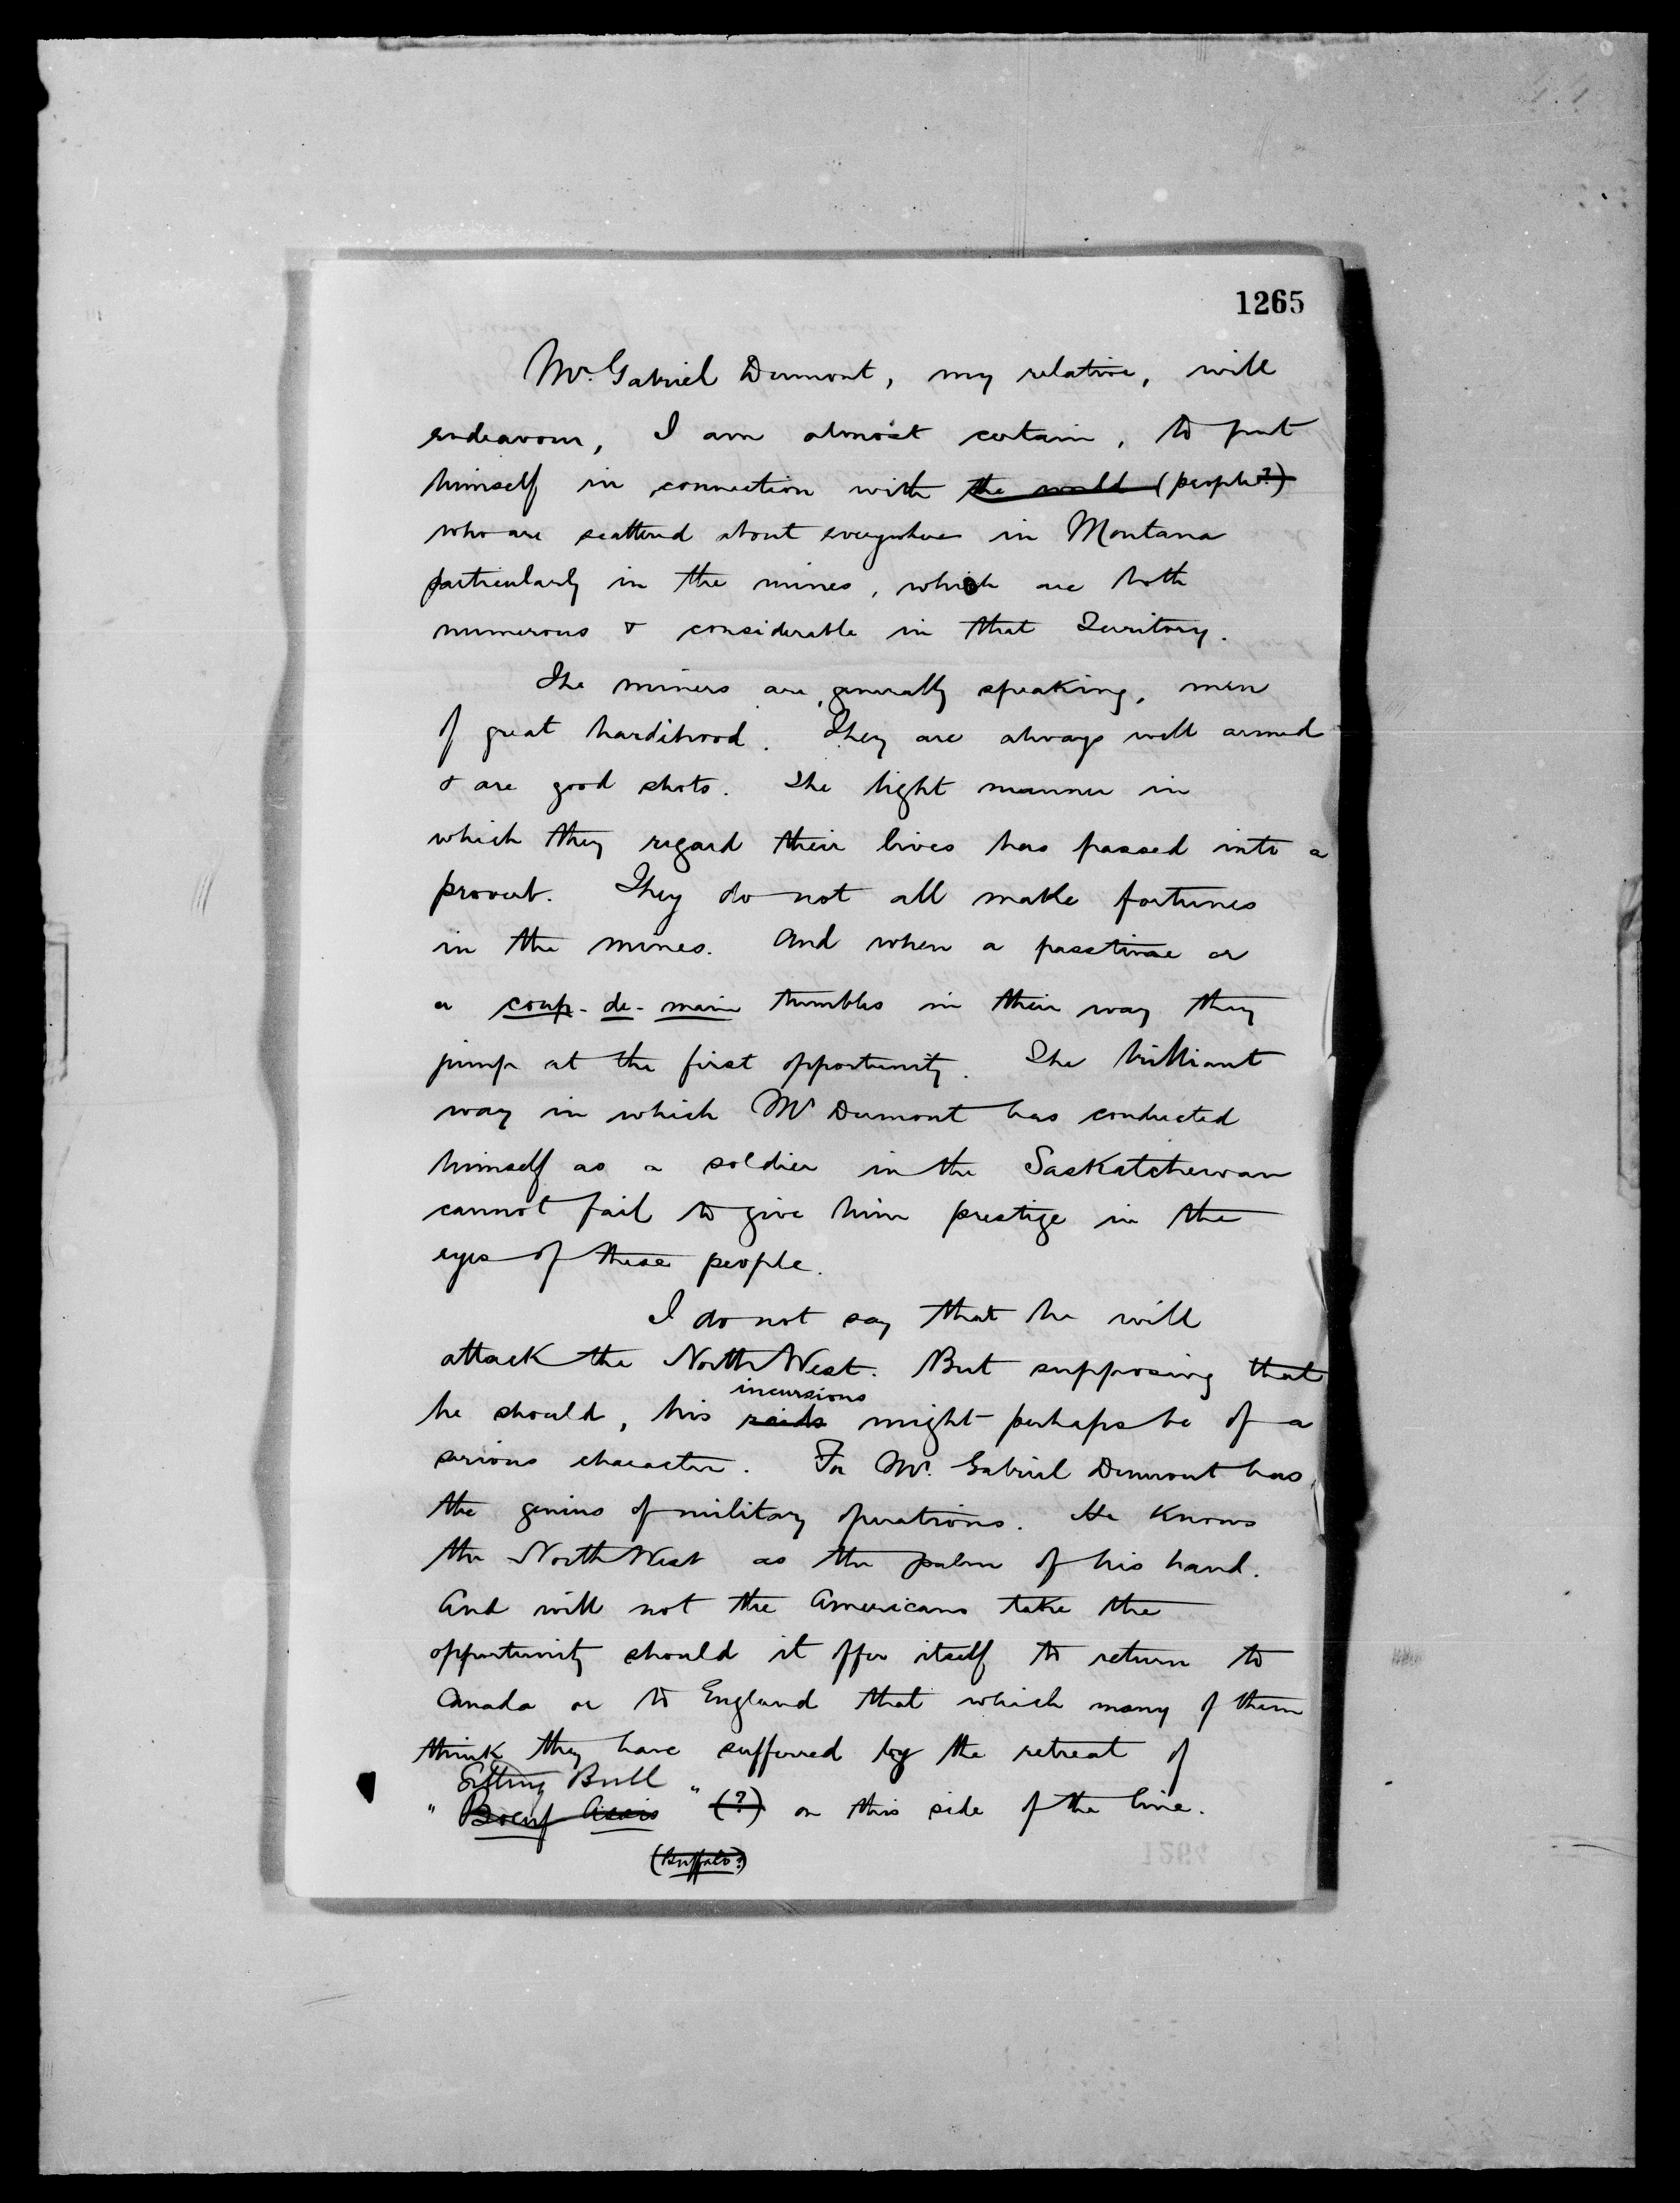 1265
Mr. Gabriel Dumont, my relative, will
endeavour, I am almost certain, to put
himself in connection with the world (people?)
who are scattered about everywhere in Montana
particularly in the mines, which are both
numerous & considerable in that Territory.
The miners are, generally speaking, men
of great hardihood. They are always well armed
& are good shots. The light manner in
which they regard their lives has passed into a
proverb. They do not all make fortunes
in the mines. And when a passtime or
a coup-de-main tumbles in their way they
jump at the first opportunity. The brilliant
way in which Mr Dumont has conducted
himself as a soldier in the Saskatchewan
cannot fail to give him prestige in the
eyes of these people.
I do not say that he will
attack the North West. But supposing that
incursions
he should, his raids might perhaps be of a
serious character. For Mr. Gabriel Dumont has
the genius of military operations. He knows
the North West as the palm of his hand.
And will not the Americans take the
opportunity should it offer itself to return to
Canada or to England that which many of them
think they have suffered by the retreat of
Sitting Bull
"Boeuf Assis" (?) on this side of the line.
(Buffalo?)
1264